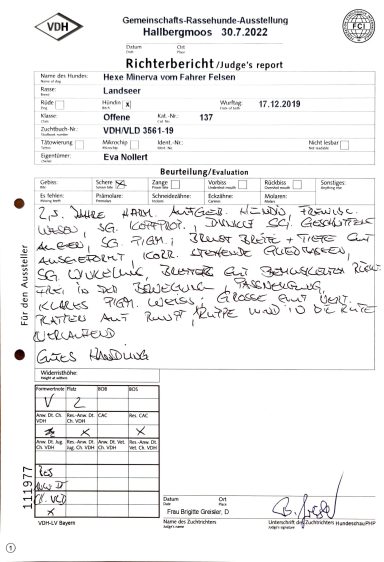 VDH
Gemeinschafts-Rassehunde-Ausstellung
Hallbergmoos 30.7.2022
FCI
Datum Ort
Date Place
Richterbericht /Judge's report
Name des Hundes: Hexe Minerva vom Fahrer Felsen
Name of dog
Rasse: Landseer
Breed
Rüde Hündin x Wurftag: 17.12.2019
Dog Bitch Date of birth
Klasse: Offene Kat.-Nr.: 137
Class Cat. No.
Zuchtbuch-Nr: VDH/VLD 3561-19
Studbook number
Tätowierung Mikrochip Ident.-Nr. Nicht lesbar
Tattooing Microchip Ident.-No. Not readable
Eigentümer: Eva Nollert
Owner
Beurteilung/Evaluation
Gebiss: Schere Zange Vorbiss Rückbiss Sonstiges:
Bite Scissors bite Pincer bite Undershot mouth Overshot mouth Anything else
Es fehlen: Prämolare: Schneidezähne: Eckzähne: Molaren:
Missing teeth Premolars Incisors Canines Molars
2,5 Jahre harm. aufgeb. Hündin, freundl.
Wesen, sg. Kopfprof., dunkle sg. geschnittene
Augen, sg. Pigm., Brust Breite + Tiefe gut
ausgeformt, korr. stehende Gliedmassen,
sg Winkelung, Breiter gut bemuskelter Rück
frei in der Bewegung, Passneigung,
klares Pigm. weiss, grosse gut vert.
Platten auf Rumpf, Kruppe und in die Rute
verlaufend
Gutes Handling
Für den Aussteller
Widerristhöhe:
Height at withers
Formwertnote Platz BOB BOS
V 2
Anw. Dt. Ch. VDH Res.-Anw. Dt. Ch. VDH CAC Res. CAC
x x x
Anw. Dt. Jug. Ch. VDH Res.-Anw. Dt. Jug. Ch. VDH Anw. Dt. Vet. Ch. VDH Res.-Anw. Dt. Vet. Ch. VDH
Res
Anw Dt
Ch. VLD
x
111977
VDH-LV Bayern
Datum Ort
Date Place
Frau Brigitte Greisler, D
Name des Zuchtrichters
Judge's name
Unterschrift des Zuchtrichters HundeschauPHP
Judge's signature
1